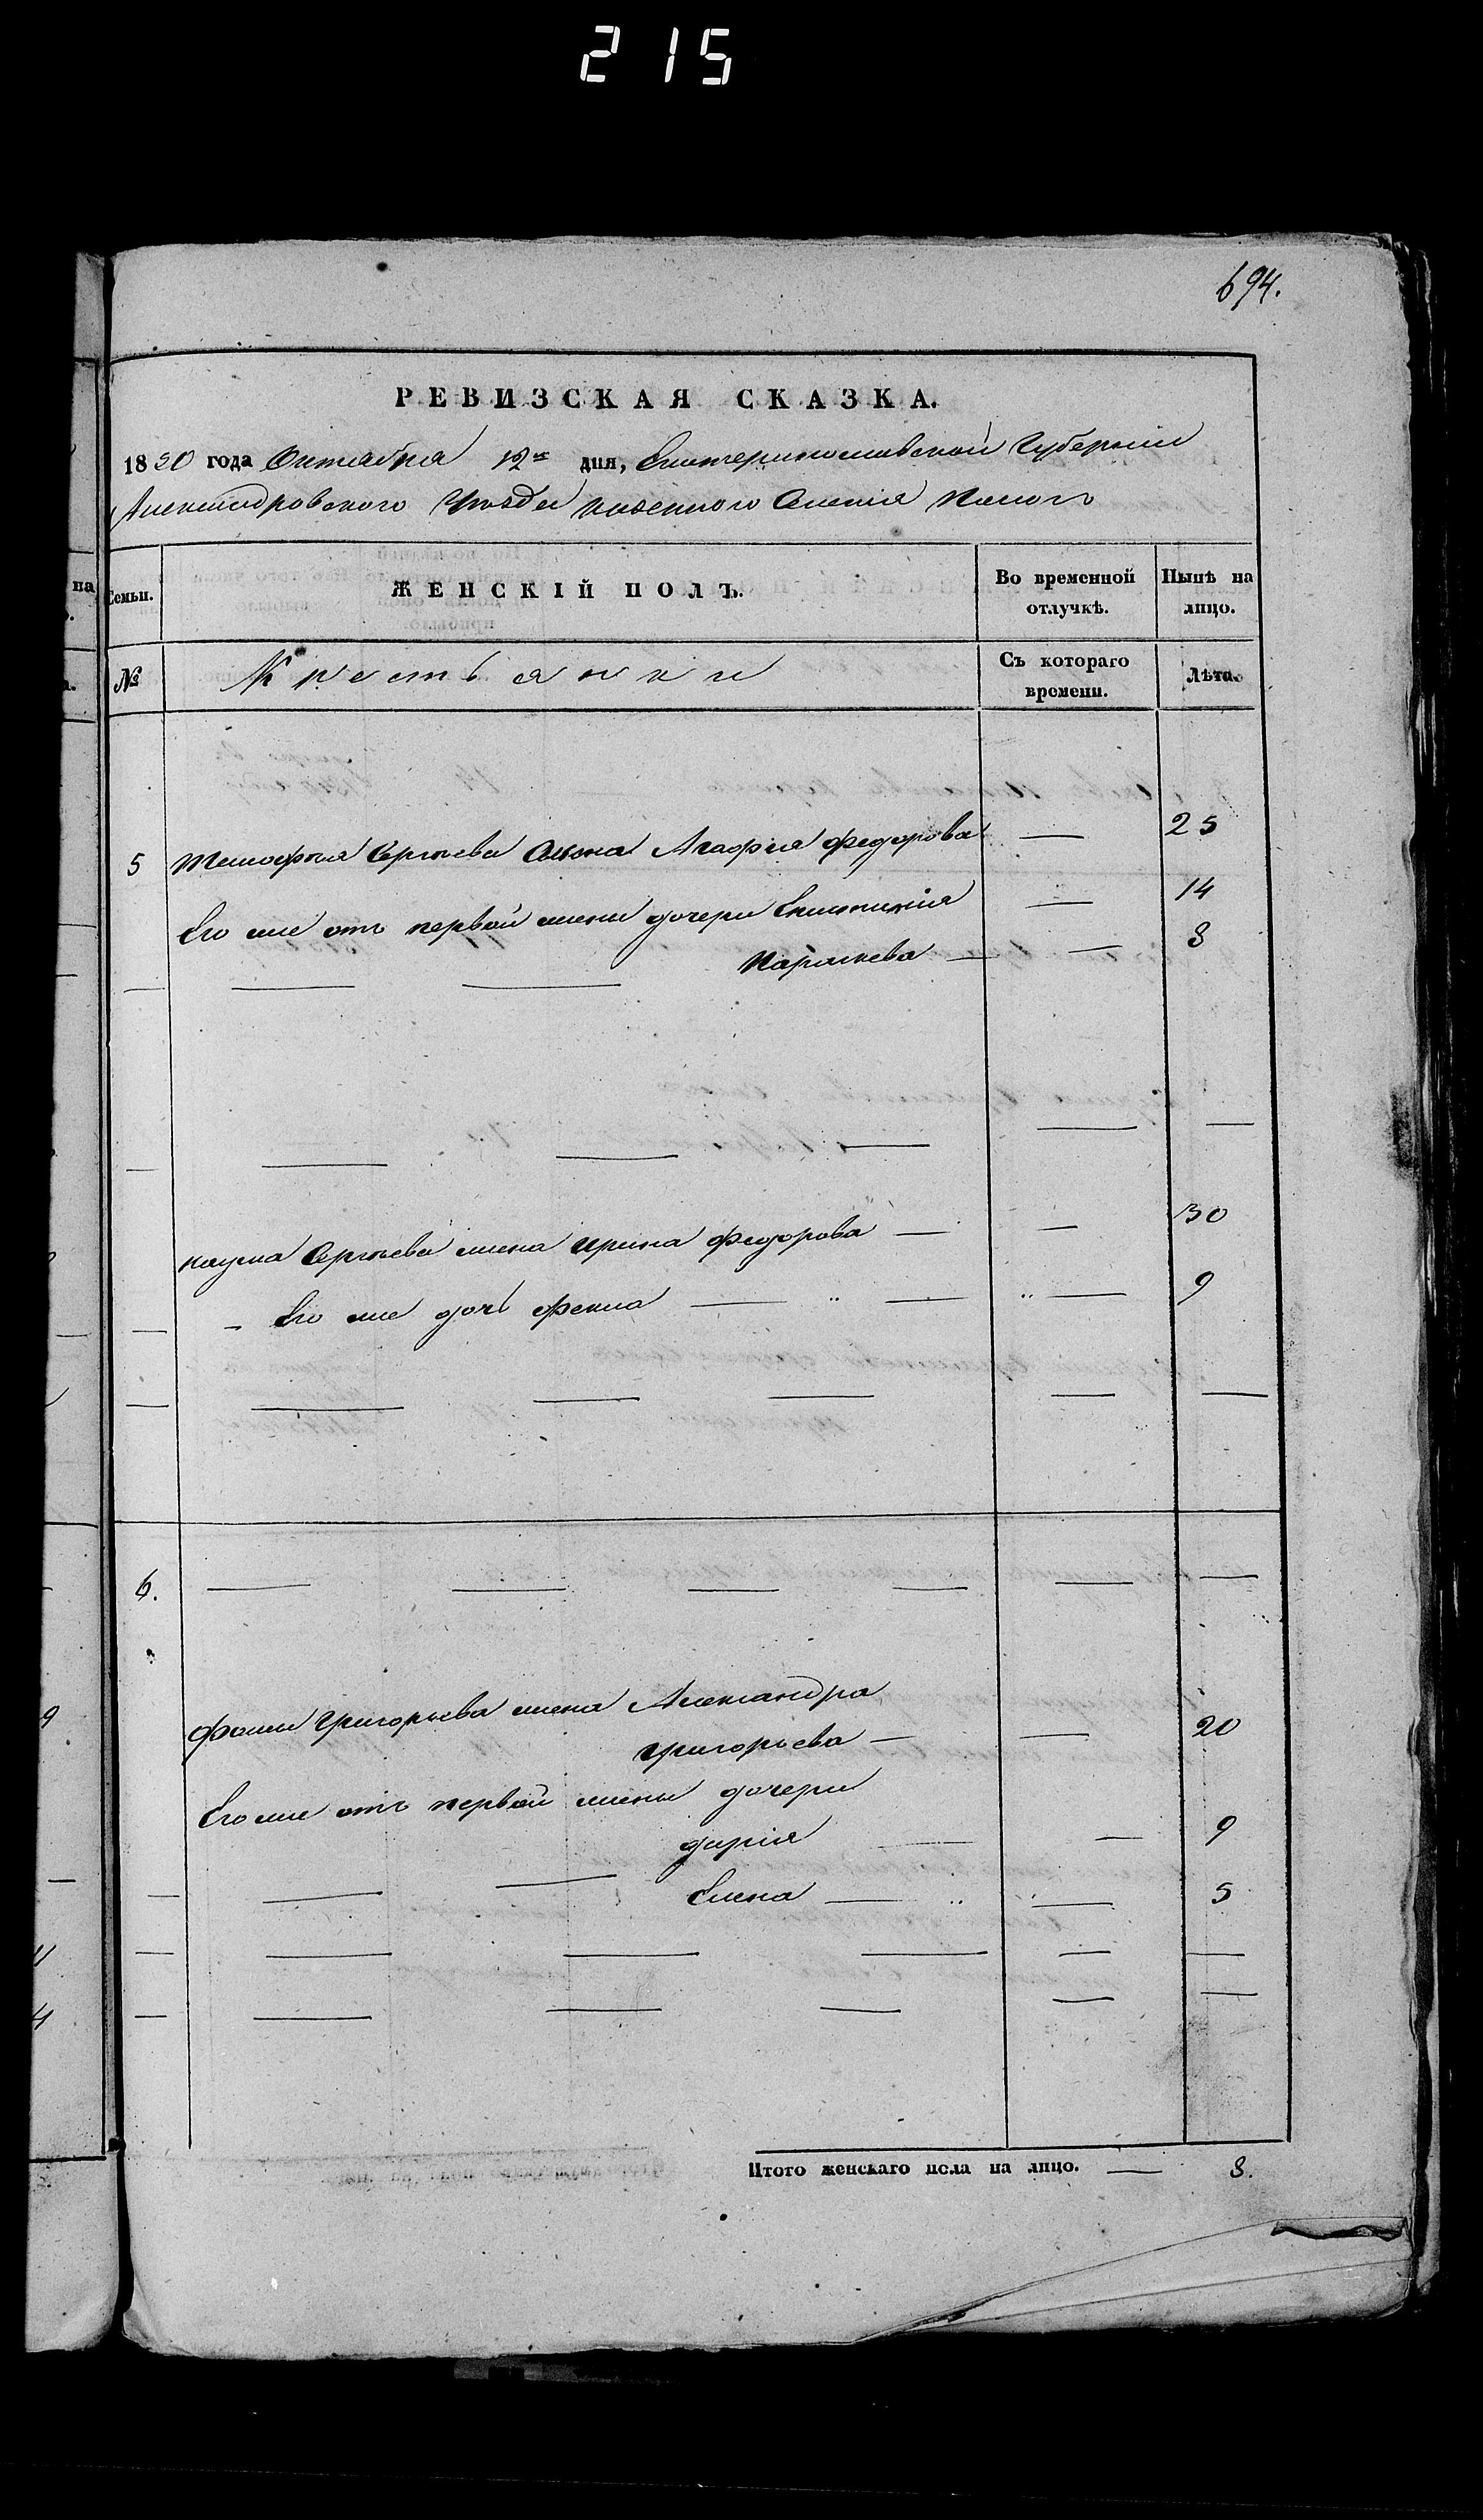 215
694.
РЕВИЗСКАЯ СКАЗКА.
1850 года Октября 12го дня, Екатеринославской Губернии
Александровского Уезда казенного Селения
на
Семьи.
ЖЕНСКІЙ ПОЛЪ.
Во временной отлучкѣ.
Нынѣ на лицо.
№
Крестьянки
Съ котораго времени.
Лѣта.
5 Тимофея Сергѣева жена Агафия федорова — 25
Его же отъ первой жены дочери — 14
Параскева — — 8
наума Сергѣева жена ирина федорова — — 30
Его же дочь фекла — " — " — 9
6.
фомы григорьева жена Александра
григорьева — — 20
Его же отъ первой жены дочери
дарія — — 9
Елена — " — 5
Итого женскаго пола на лицо. — 8.